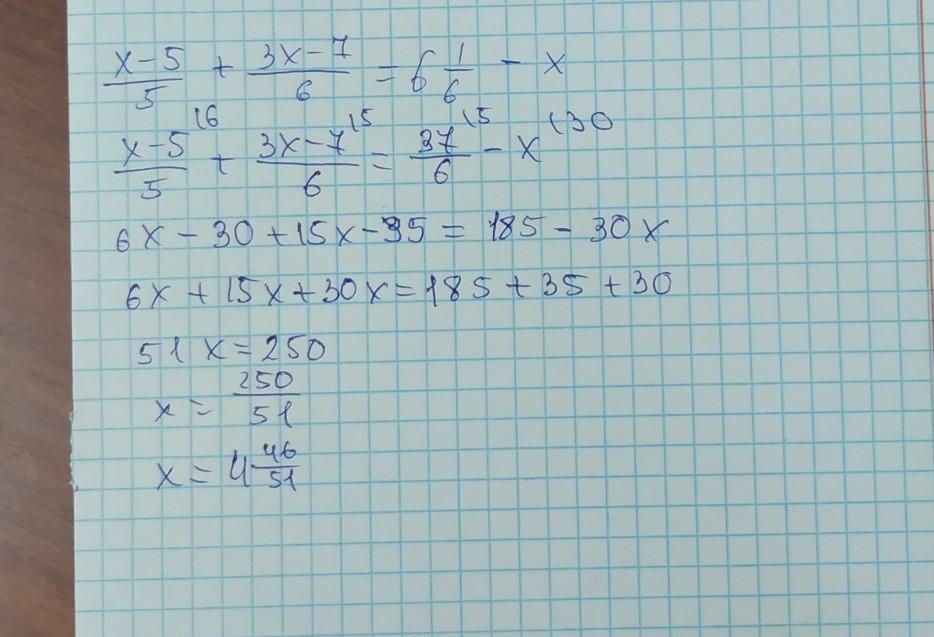 x-5/5 + 3x-7/6 = 6 1/6 - x
x-5/5 \6 + 3x-7/6 \5 = 37/6 \5 - x \30
6x - 30 + 15x - 35 = 185 - 30x
6x + 15x + 30x = 185 + 35 + 30
51x = 250
x = 250/51
x = 4 46/51